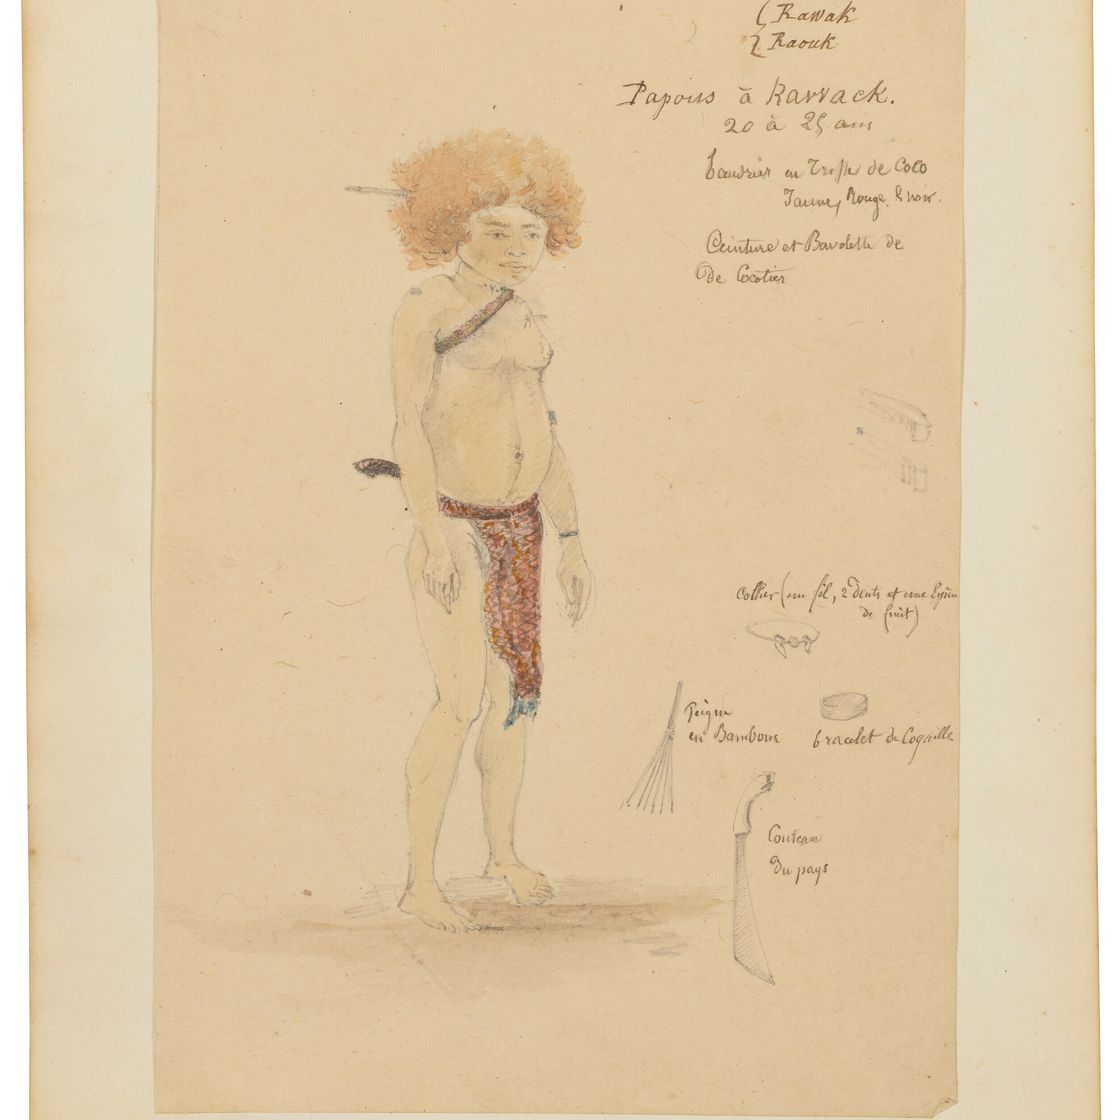 Rawak
Raouk
Papous à Rawack.
20 à 25 ans
baudrier en Tresse de Coco
Jaune, Rouge & noir.
Ceinture et Bavolette de
De Cocotier
Collier (un fil, 2 dents et une
de fruit)
Peigne
en Bambou
bracelet de Coquille
Couteau
Du pays